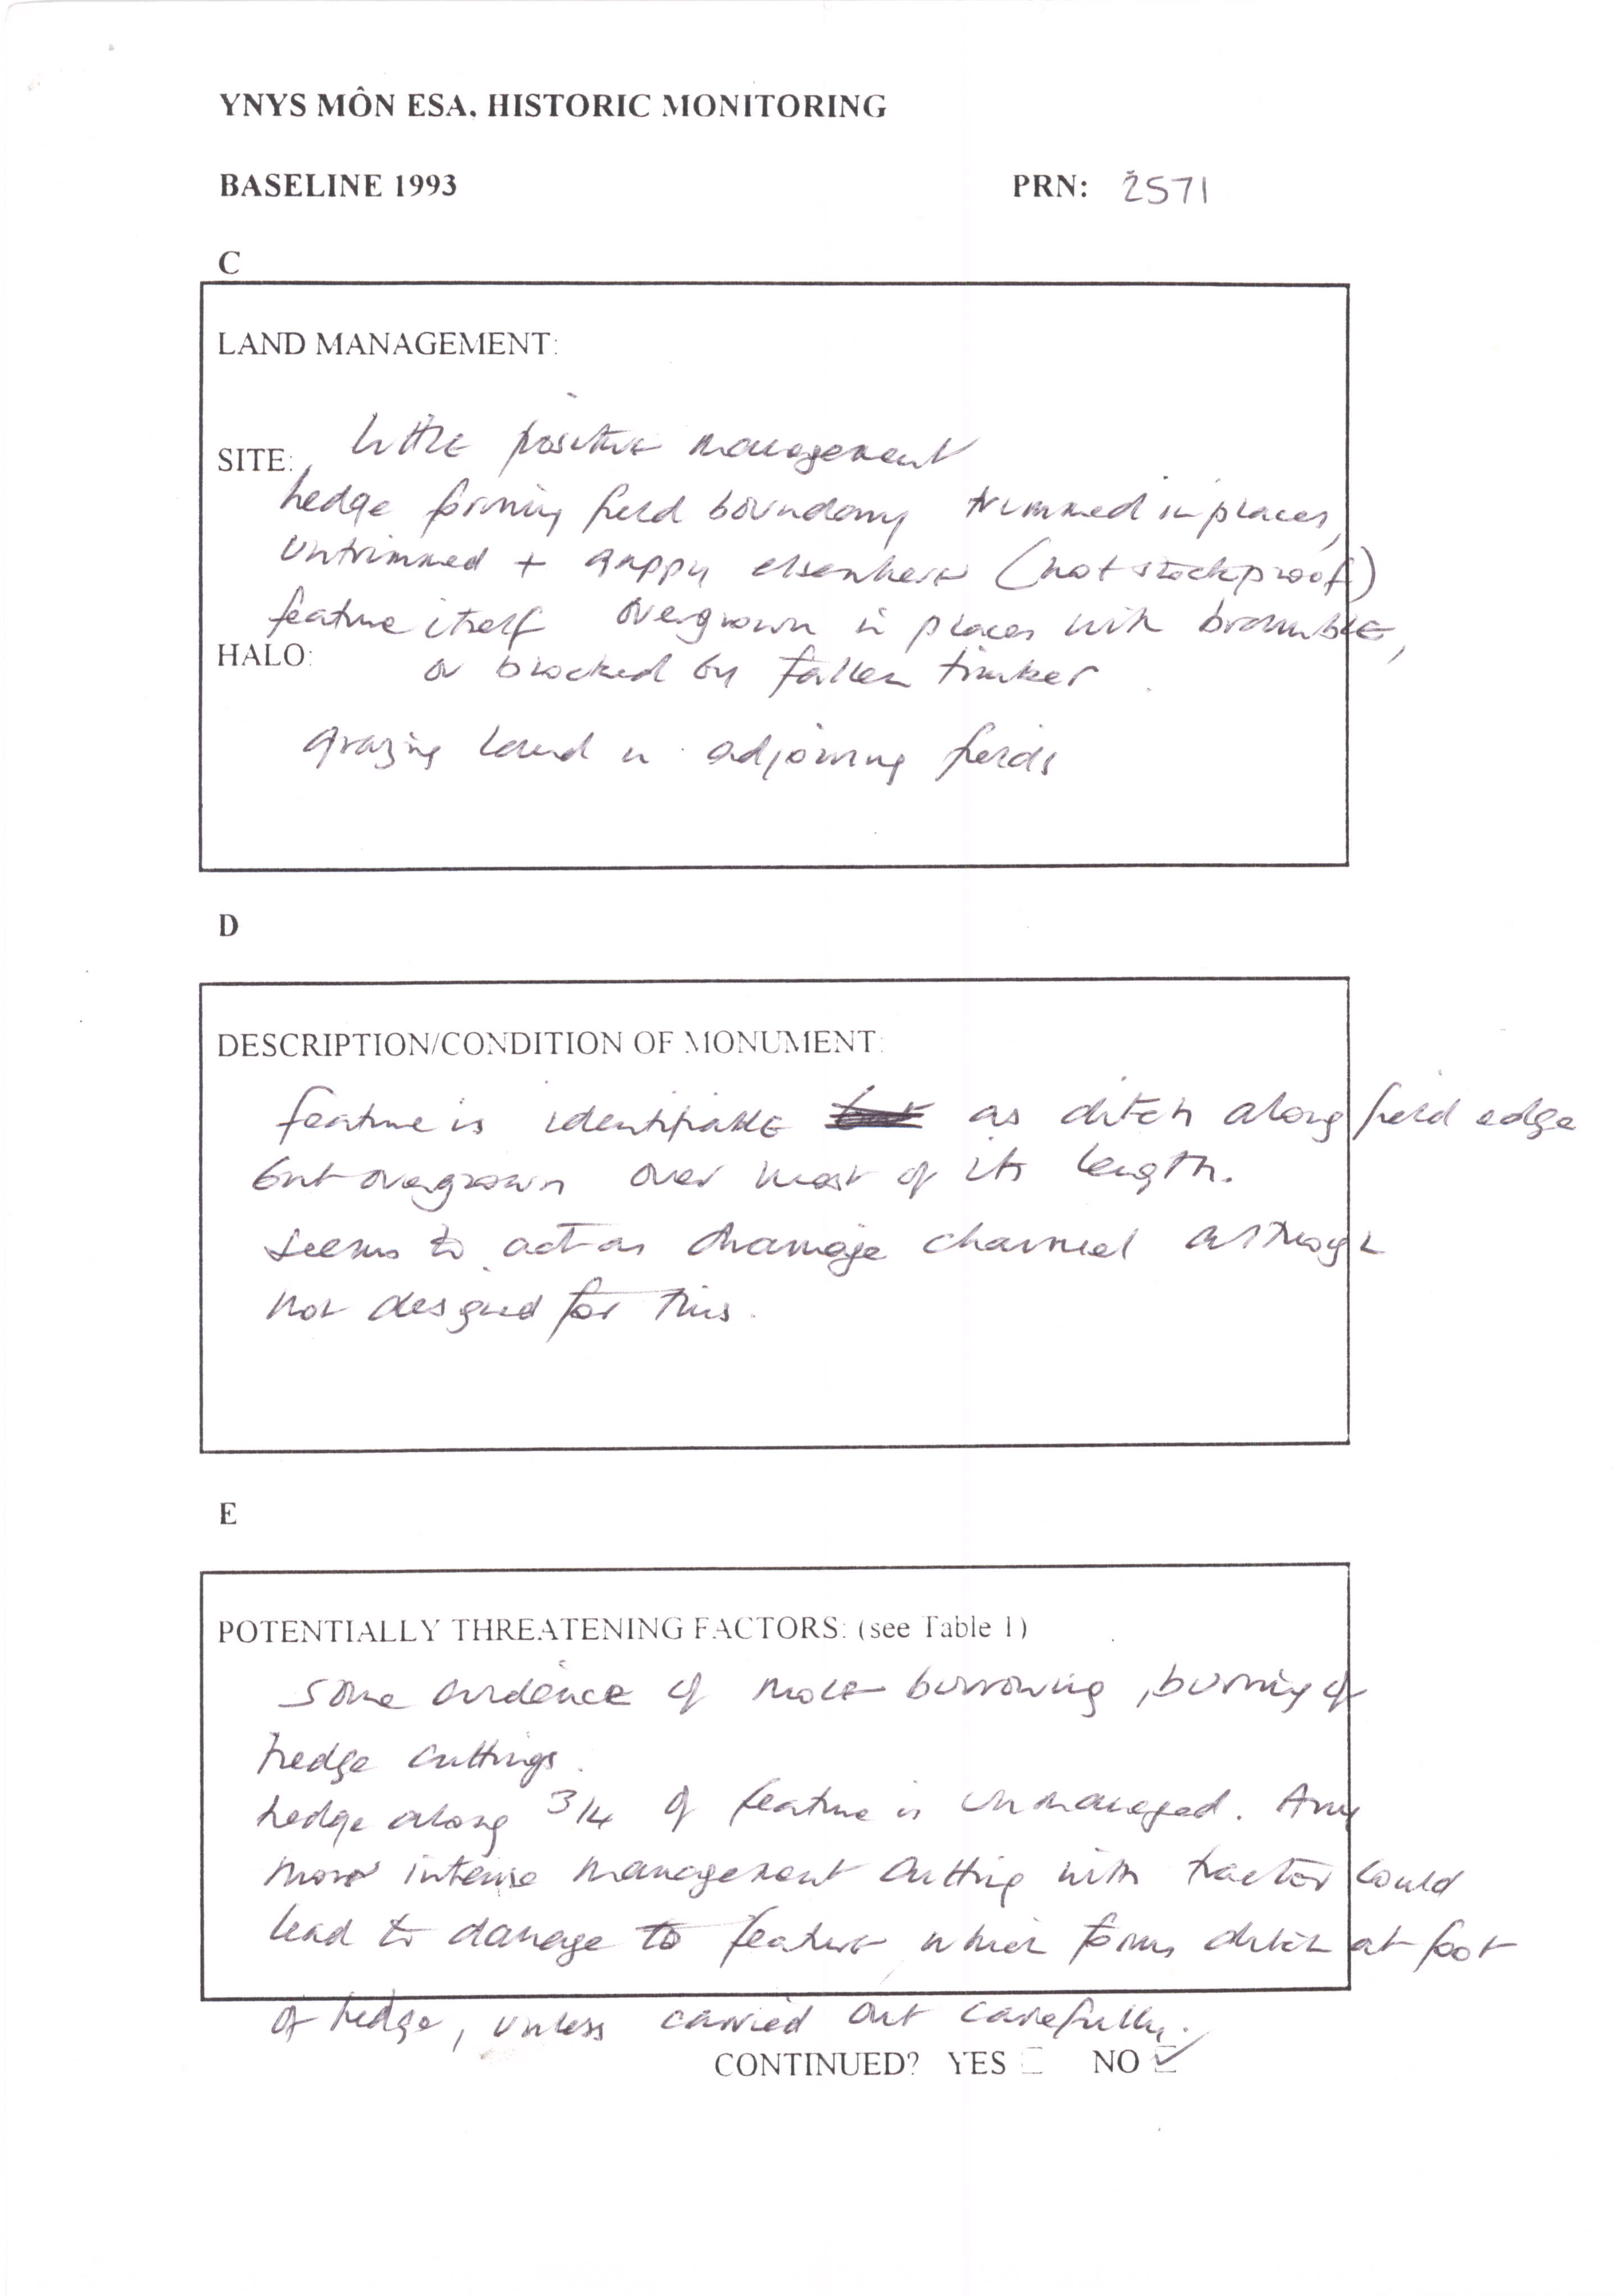 YNYS MÔN ESA. HISTORIC MONITORING
BASELINE 1993 PRN: 2571
C
LAND MANAGEMENT:
SITE: little positive management
hedge forming field boundary trimmed in places,
untrimmed + gappy elsewhere (not stockproof)
feature itself overgrown in places with bramble,
HALO: or blocked by fallen timber
grazing land in adjoining fields
D
DESCRIPTION/CONDITION OF MONUMENT:
feature is identifiable as ditch along field edge
but overgrown over most of its length.
seems to act as drainage channel although
not designed for this.
E
POTENTIALLY THREATENING FACTORS: (see Table 1)
some evidence of mole burrowing, burning of
hedge cuttings.
hedge along 3/4 of feature is unmanaged. Any
more intense management cutting with tractor could
lead to damage to feature which forms ditch at foot
of hedge, unless carried out carefully.
CONTINUED? YES NO ✓